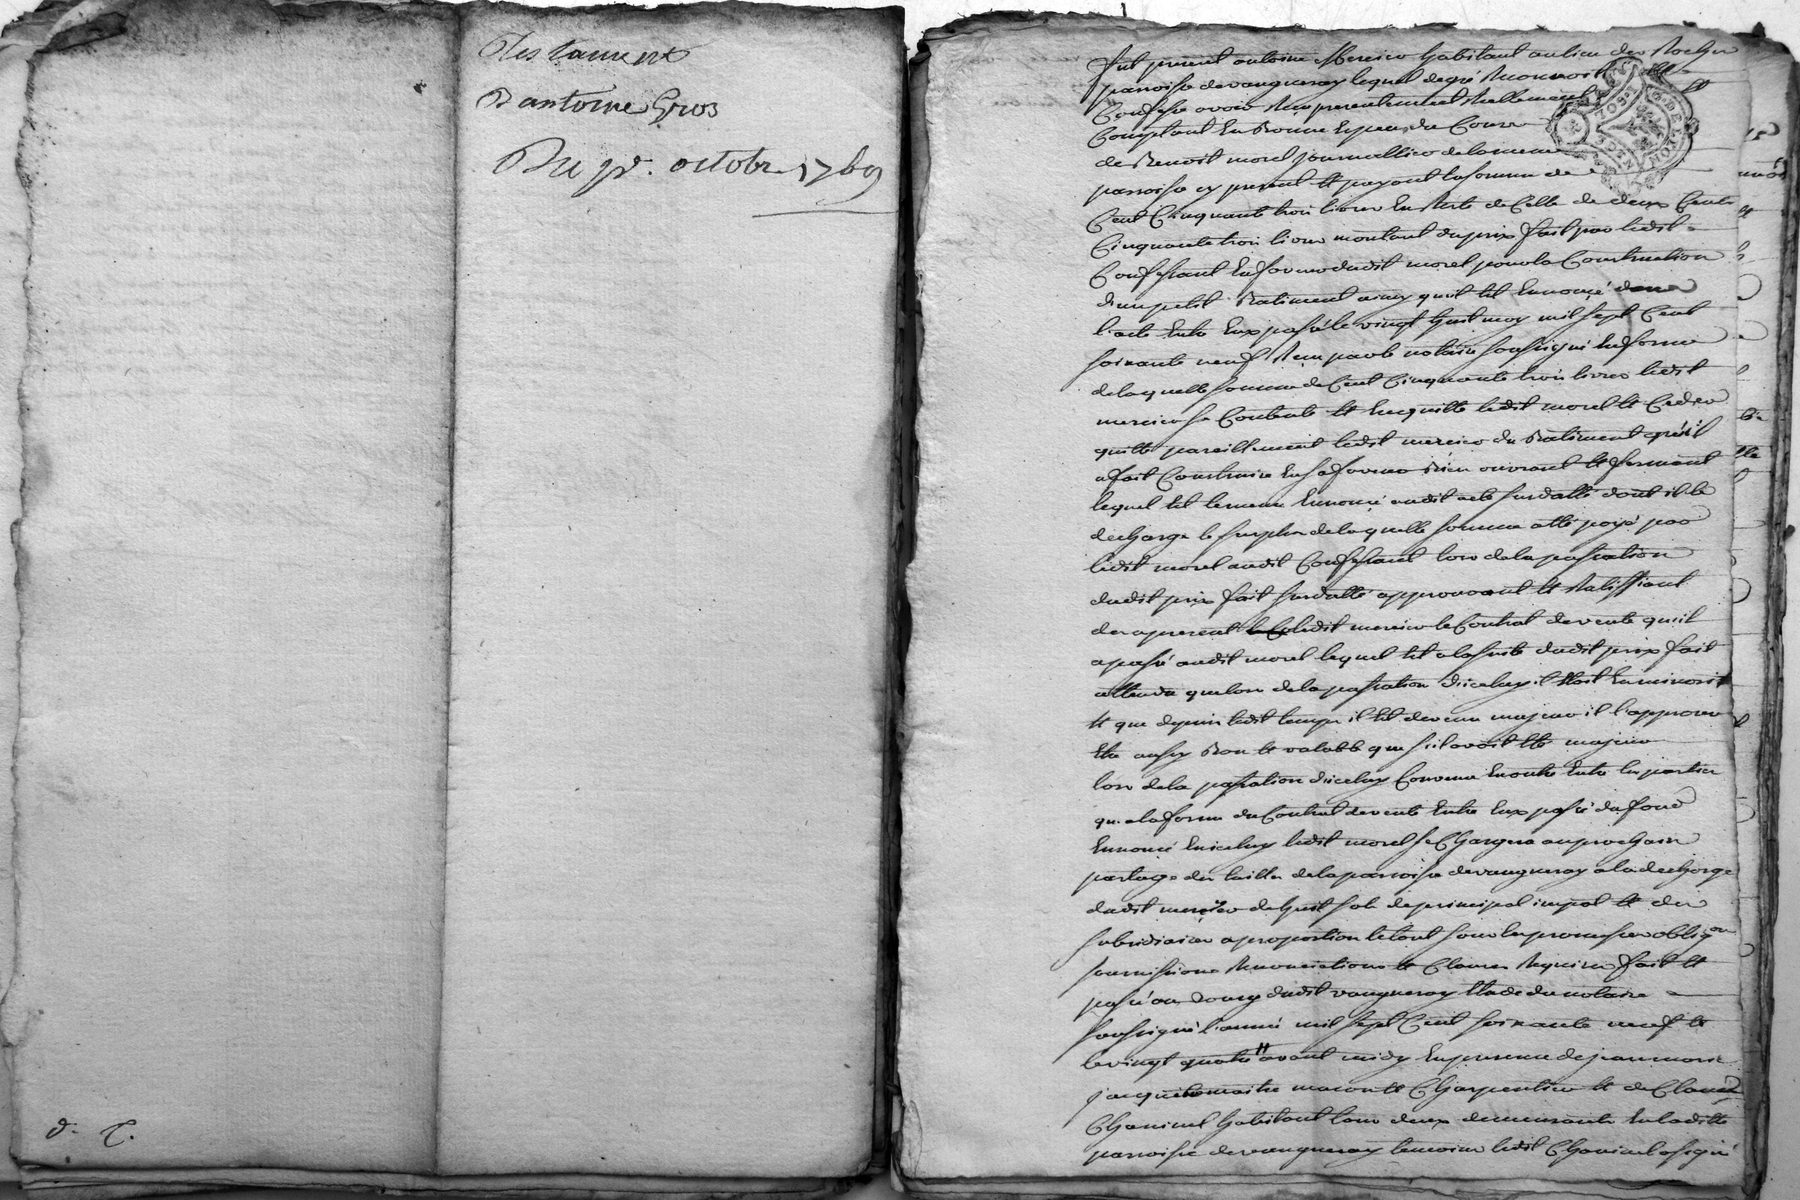 Testament
D'antoine Gros
Du pr. octobre 1769
d. T.
fut present antoine Mercier habitant au lieu des Rocher
paroisse de vaugneray lequel de gré Reconnoit et
Confesse avoir Reçu presentement Reellement
Comptant En Bonne Espece du Cours
de Benoit morel journallier de la meme
paroisse cy present et payant la somme de
Cent Cinquante trois livres En Reste de Celle de deux Cent
Cinquante trois livres montant du prix fait par ledit
Confessant En faveur dudit morel pour la Construction
d'un petit Batiment ainsy quil Est Ennoncé dans
l'acte Entre Eux passé le vingt huit may mil sept Cent
soixante neuf Reçu par le notaire soussigné En forme
de laquelle somme de Cent Cinquante trois livres ledit
mercier se Contente et En quitte ledit morel et Ce dernier
quitte pareillement ledit mercier du Batiment qu'il
a fait Construire En sa faveur Bien ouvrant et fermant
lequel Est le meme Ennoncé audit acte susdatté dont il le
decharge le surplus de laquelle somme a Eté payé par
ledit morel audit Confessant lors de la passation
dudit prix fait susdatté approuvant et Ratiffiant
des apresent ledit mercier le Contrat de vente qu'il
a passé audit morel lequel Est a la suite dudit prix fait
attendu que lors de la passation d'iceluy il Etoit En minorité
et que depuis ledit temps il Est devenu majeur il l'approuve
Etre aussy Bon et valable que s'il avoit Eté majeur
lors de la passation d'icelluy Convenu En outre Entre les parties
qu'a la forme du Contrat de vente Entre Eux passé du fond
Ennoncé En iceluy ledit morel se Chargera au prochain
partage des tailles de la paroisse de vaugneray a la decharge
dudit mercier de huit sols de principal impot et des
subsidiaires a proportion le tout sous les promesses oblig.on
soumissions Renonciations et Clauses Requises fait et
passé au Bourg dudit vaugneray Etude du notaire
soussigné l'année mil sept Cent soixante neuf et
le vingt quatre avant midy En presence de jean marie
jacquet maitre macon et Charpentier et de Claude
Chaninel habitant tous deux demeurants En ladite
paroisse de vaugneray temoins ledit Chaninel a signé